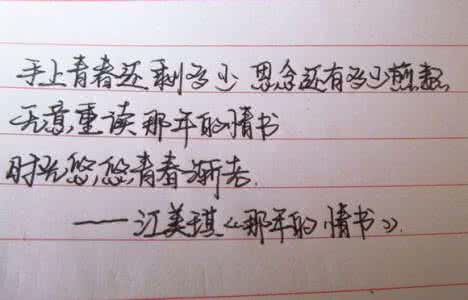 手上青春还剩多少 思念还有多少煎熬
无意重读那年的情书
时光悠悠青春渐去.
——江美琪《那年的情书》.